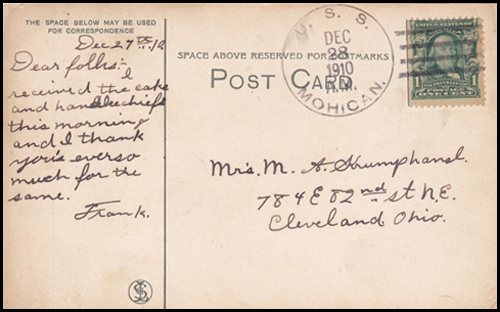 THE SPACE BELOW MAY BE USED
FOR CORRESPONDENCE
Dec 27th 10
Dear folks:- I
received the cake
and handkechiefs
this morning
and I thank
you's everso
much for the
same.
Frank.
SPACE ABOVE RESERVED FOR POSTMARKS
POST CARD
U. S. S.
DEC
28
1910
A.M.
MOHICAN.
Mrs. M. A. Krumphansl.
784 E 82nd st N.E.
Cleveland Ohio.